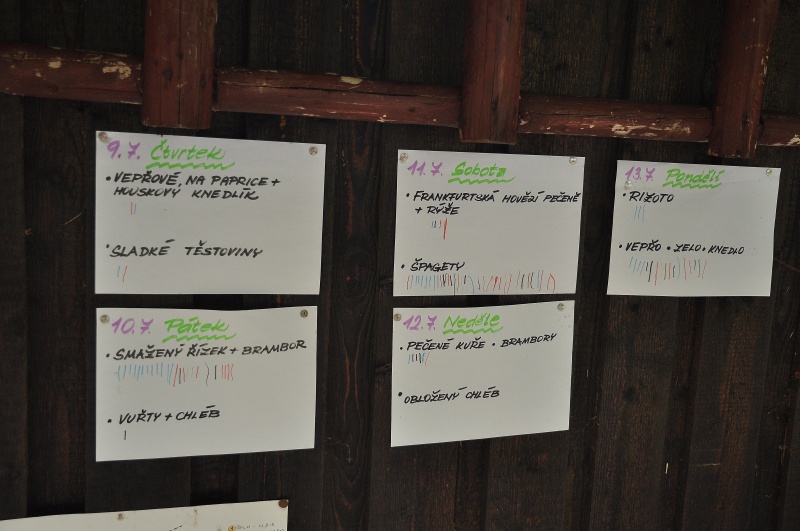 9.7. Čtvrtek
• VEPŘOVÉ, NA PAPRICE +
HOUSKOVÝ KNEDLÍK
• SLADKÉ TĚSTOVINY
10.7. Pátek
• SMAŽENÝ ŘÍZEK + BRAMBOR
• VUŘTY + CHLÉB
11.7. Sobota
• FRANKFURTSKÁ HOVĚZÍ PEČENĚ
+ RÝŽE
• ŠPAGETY
12.7. Neděle
• PEČENÉ KUŘE • BRAMBORY
• OBLOŽENÝ CHLÉB
13.7. Pondělí
• RIZOTO
• VEPŘO • ZELO • KNEDLO